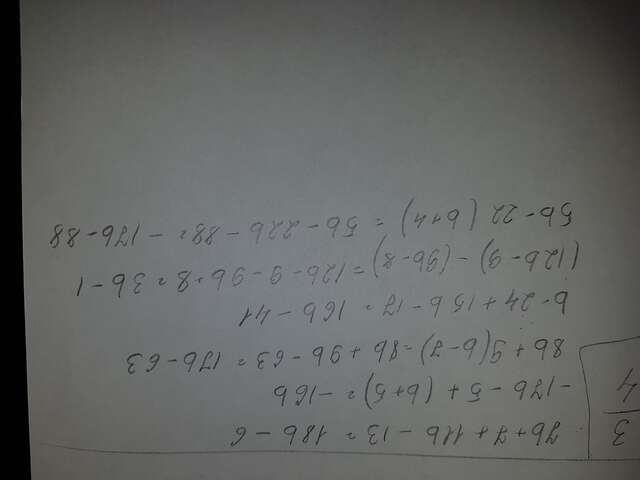 3
4
7b + 7 + 11b - 13 = 18b - 6
-17b - 5 + (b+5) = -16b
8b + 9(b-7) = 8b + 9b - 63 = 17b - 63
b - 24 + 15b - 17 = 16b - 41
(12b-9) - (9b-8) = 12b - 9 - 9b + 8 = 3b - 1
5b - 22(b+4) = 5b - 22b - 88 = -17b - 88